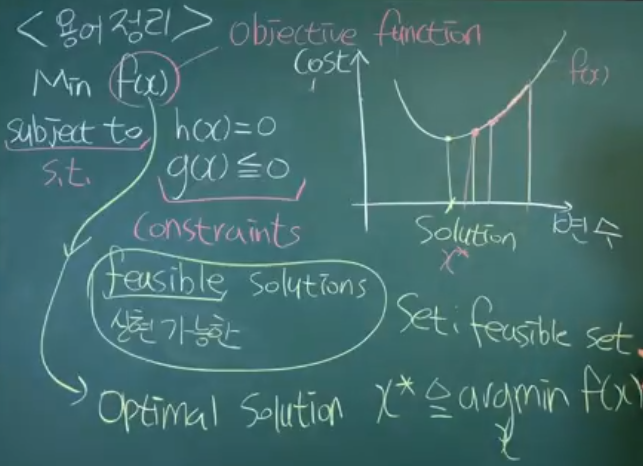 <용어정리>
Objective function
Min f(x)
subject to h(x)=0
s.t. g(x)≦0
Constraints
Cost
f(x)
변수
Solution
x*
feasible solutions
실현가능한
Set: feasible set
Optimal Solution x* ≙ argmin f(x)
x